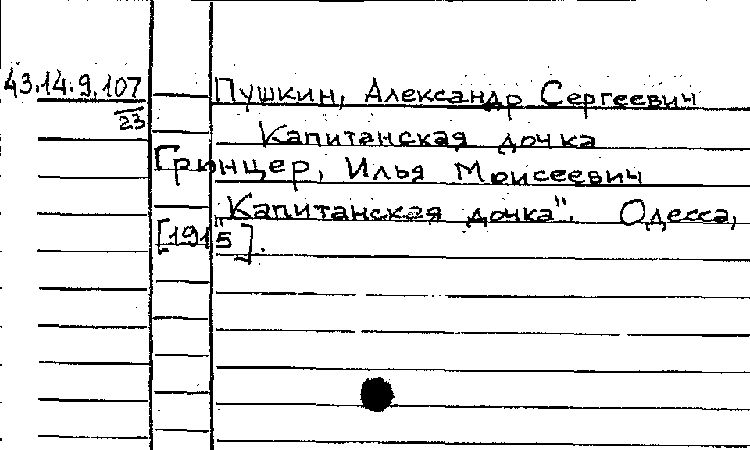 43.14.9.107 Пушкин, Александр Сергеевич
23
Капитанская дочка
Гринцер, Илья Моисеевич
"Капитанская дочка". Одесса,
[1915].